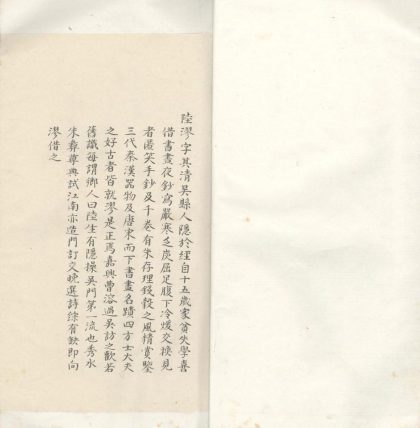 陸漻字其清吳縣人隱於經自十五歲家貧失學喜
借書晝夜鈔寫嚴寒乏炭屈足腹下冷煖交換見
者匿笑手鈔及千卷有朱存理錢穀之風精賞鑒
三代秦漢器物及唐宋而下書畫名蹟四方士大夫
之好古者皆就漻是正焉嘉興曹溶過吳訪之歡若
舊識每謂鄉人曰陸生有隱操吳門第一流也秀水
朱彝尊典試江南亦造門訂交晚選詩綜有缺即向
漻借之